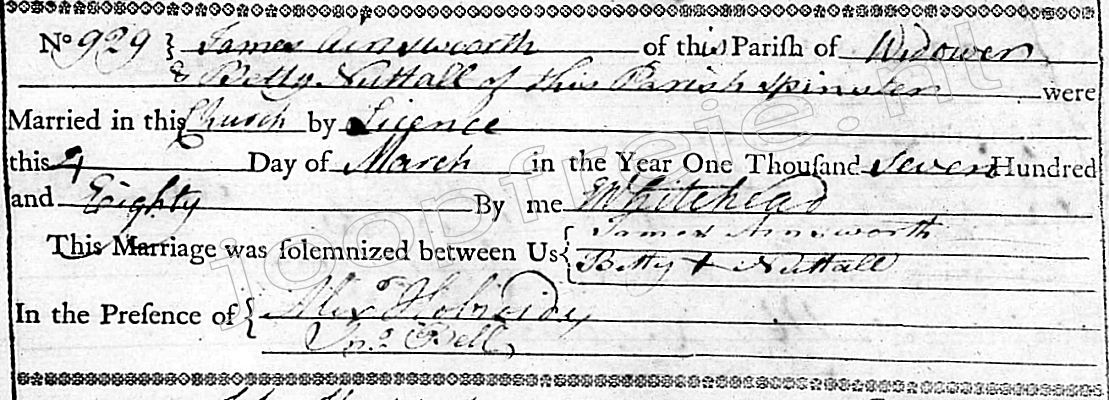 No 929 } James Ainsworth of this Parish of Widower
& Betty Nuttall of this Parish Spinster were
Married in this Church by Licence
this 4 Day of March in the Year One Thousand Seven Hundred
and Eighty By me Whitehead
This Marriage was solemnized between Us { James Ainsworth
Betty + Nuttall
In the Presence of { Alexr
Jno Bell
joopfreie.nl